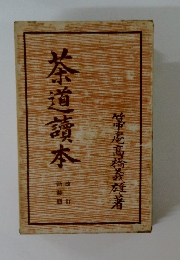 茶道讀本
改訂
箒庵高橋義雄著